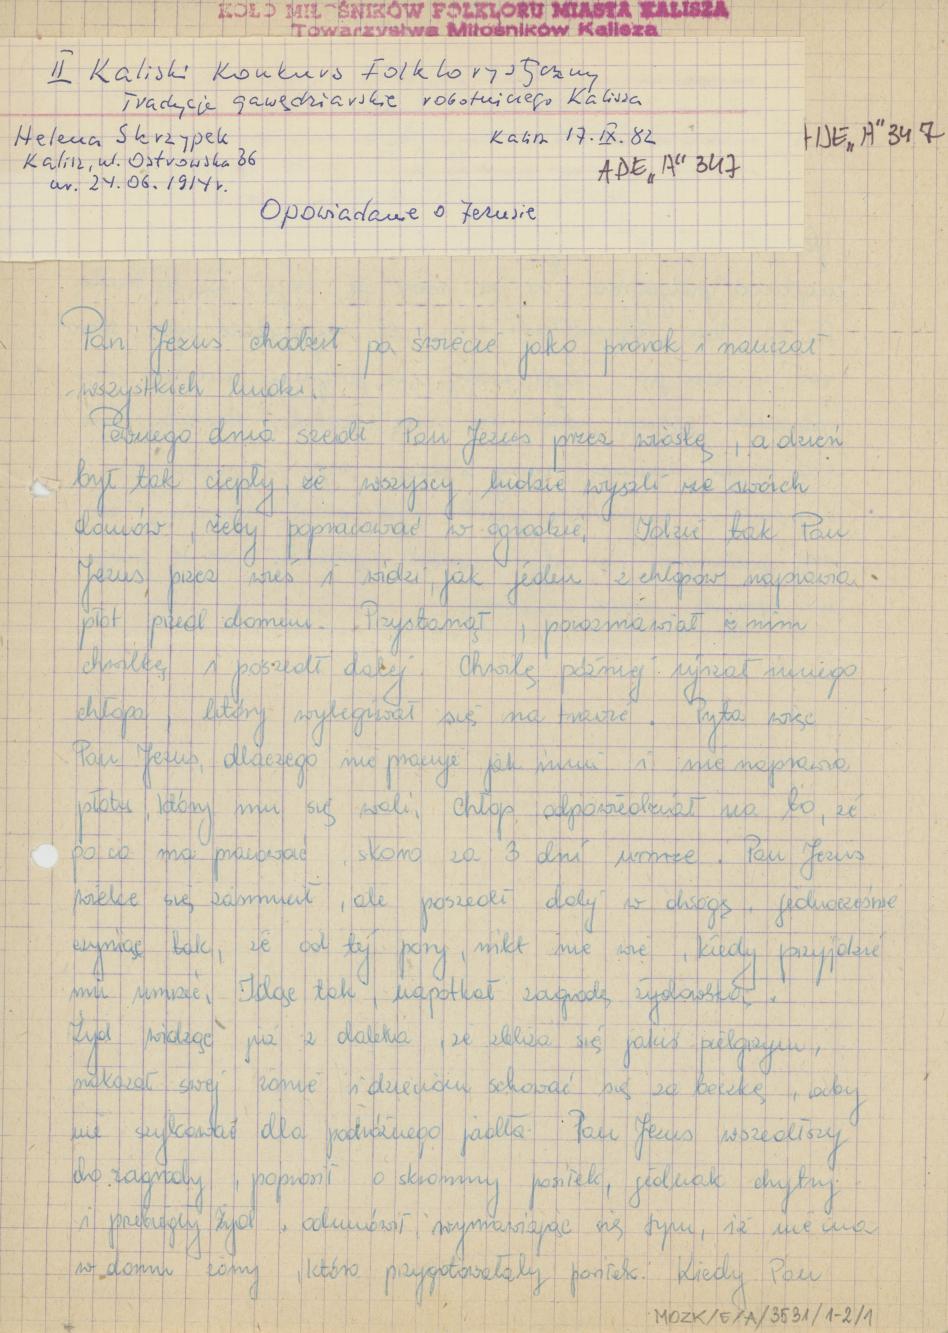 KOŁO MIŁOŚNIKÓW FOLKLORU MIASTA KALISZA
Towarzystwa Miłośników Kalisza
II Kaliski Konkurs Folklorystyczny
Tradycje gawędziarskie robotniczego Kalisza
Helena Skrzypek
Kalisz 17.IX.82
Kalisz, ul. Ostrowska 36
ur. 24.06.1914r.
ADE „A" 347
ADE „A" 347
Opowiadanie o Jezusie
Pan Jezus chodził po świecie jako prorok i nauczał
wszystkich ludzi.
Pewnego dnia szedł Pan Jezus przez wioskę, a dzień
był tak ciepły, że wszyscy ludzie wyszli ze swoich
domów, żeby popracować w ogrodzie. Idzie tak Pan
Jezus przez wieś i widzi, jak jeden z chłopów naprawia
płot przed domem. Przystanął, porozmawiał z nim
chwilkę i poszedł dalej. Chwilę później ujrzał innego
chłopa, który wylegiwał się na trawie. Pyta więc
Pan Jezus, dlaczego nie pracuje jak inni i nie naprawia
płotu, który mu się wali. Chłop odpowiedział na to, że
po co ma pracować, skoro za 3 dni umrze. Pan Jezus
wielce się zasmucił, ale poszedł dalej w drogę, jednocześnie
czyniąc tak, że od tej pory, nikt nie wie, kiedy przyjdzie
mu umrzeć. Idąc tak, napotkał zagrodę żydowską.
Żyd widząc już z daleka, że zbliża się jakiś pielgrzym,
nakazał swej żonie i dzieciom schować się za beczkę, aby
nie szykować dla podróżnego jadła. Pan Jezus wszedłszy
do zagrody, poprosił o skromny posiłek, jednak chytry
i przebiegły Żyd, odmówił wymawiając się tym, iż nie ma
w domu żony, która przygotowałaby posiłek. Kiedy Pan
MOZK/E/A/3531/1-2/1